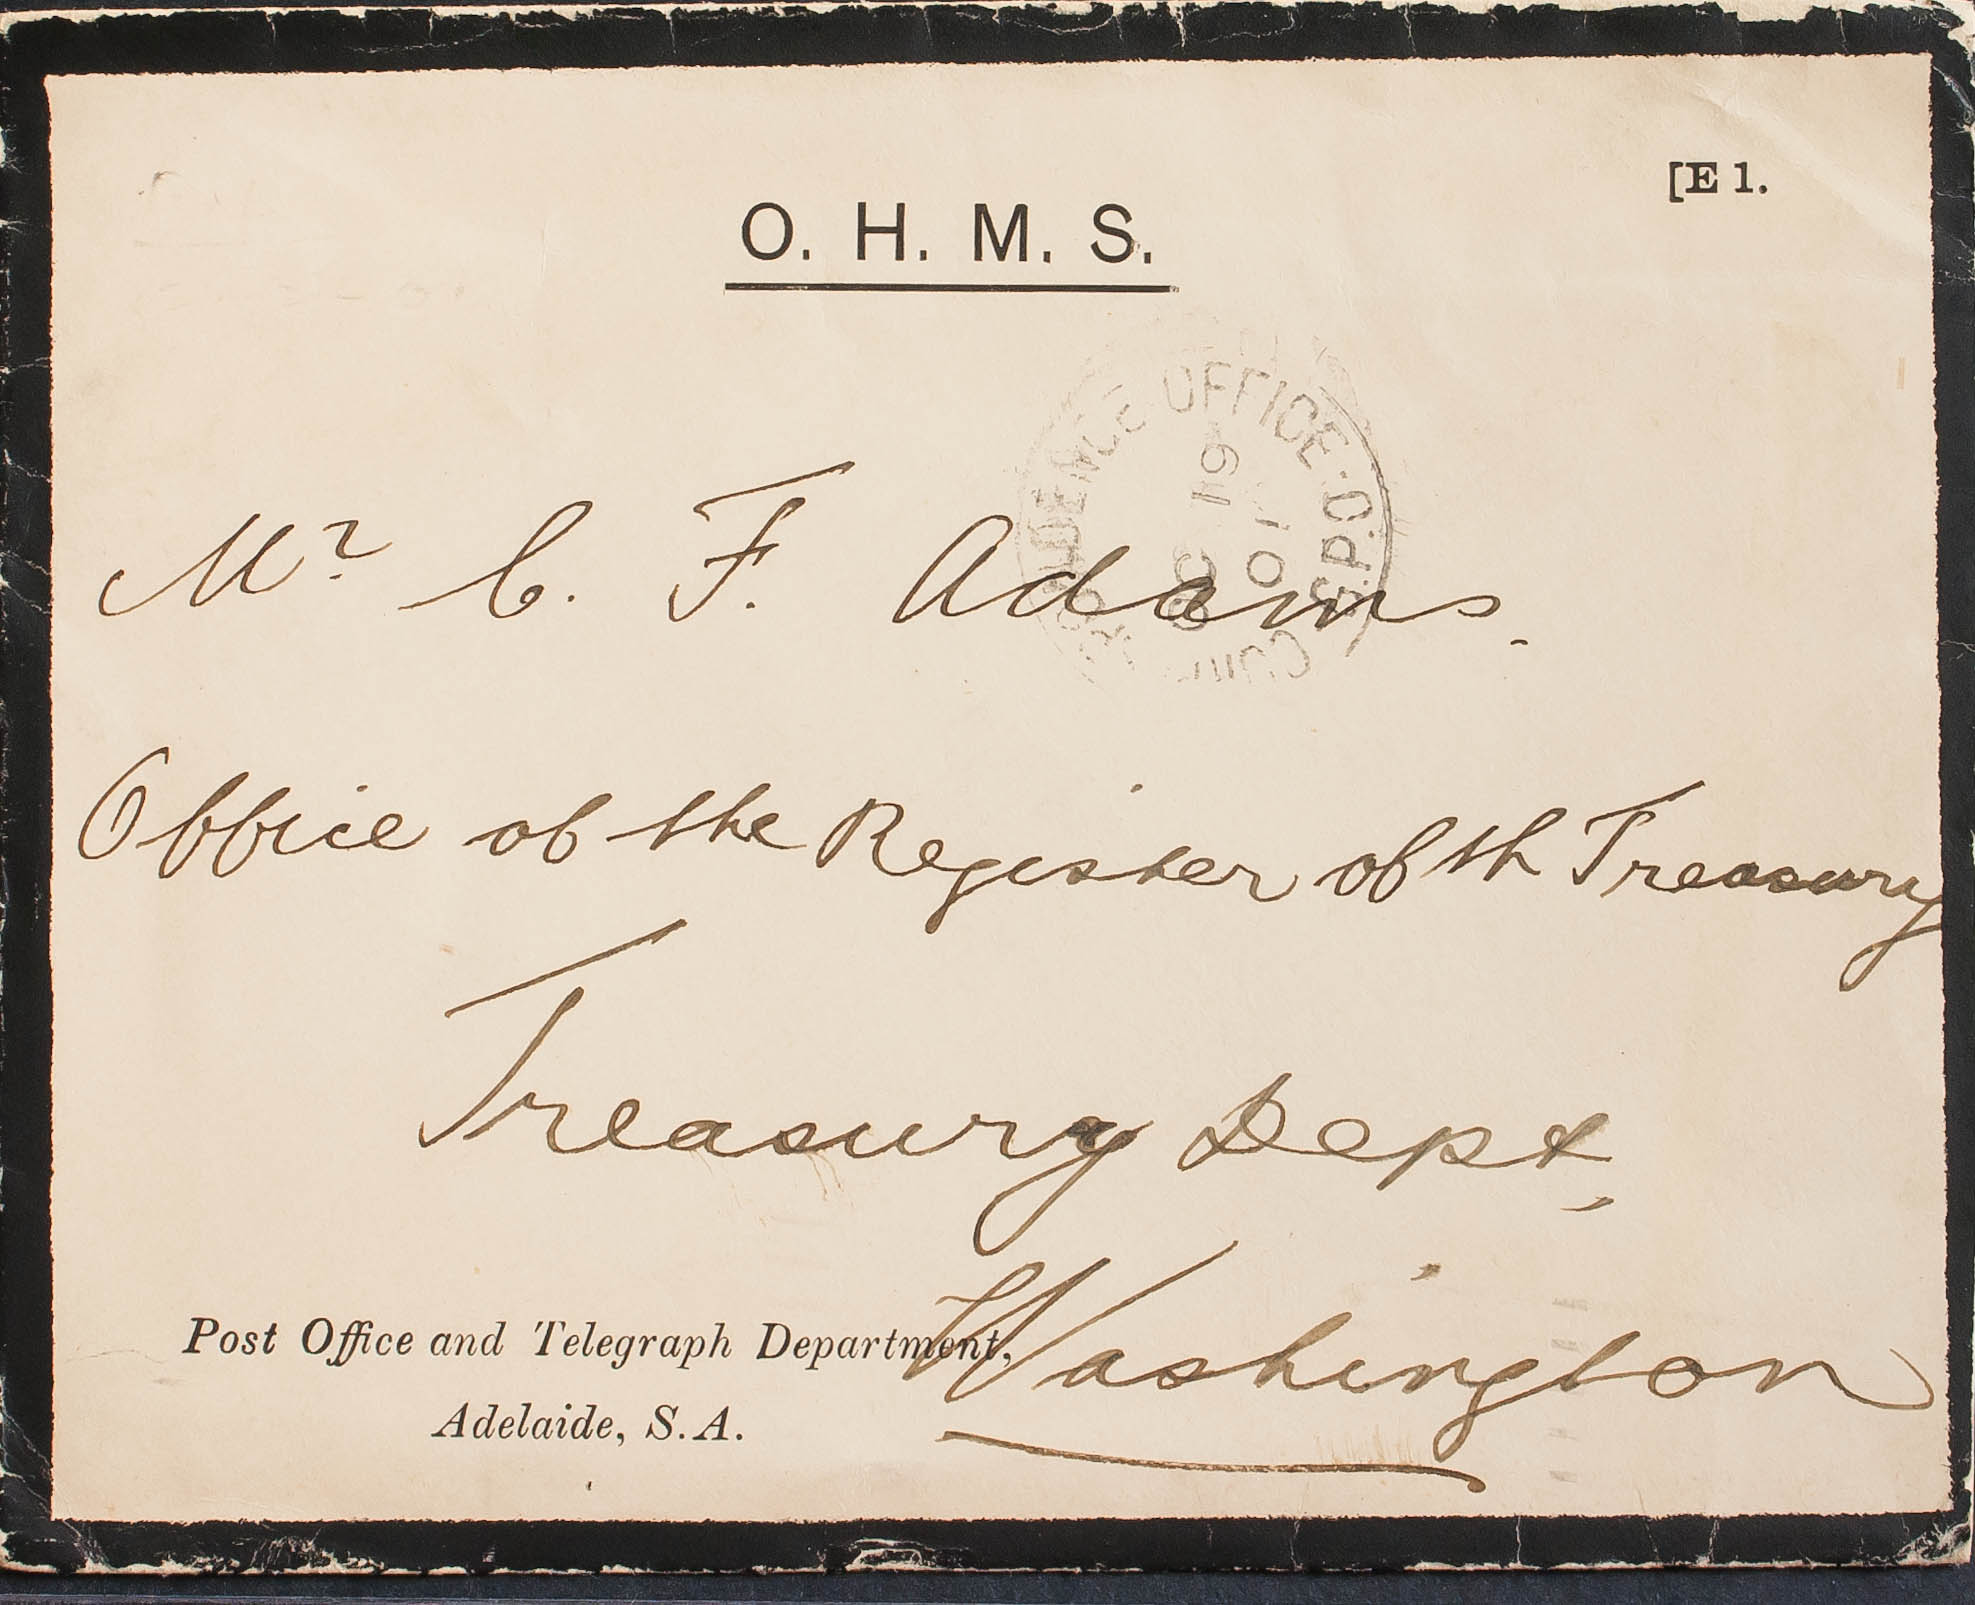 [E 1.
O. H. M. S.
OFFICE. G.P.O.
Mr C. F. Adams.
Office of the Register of th Treasury
Treasury Dept,
Washington
Post Office and Telegraph Department,
Adelaide, S.A.